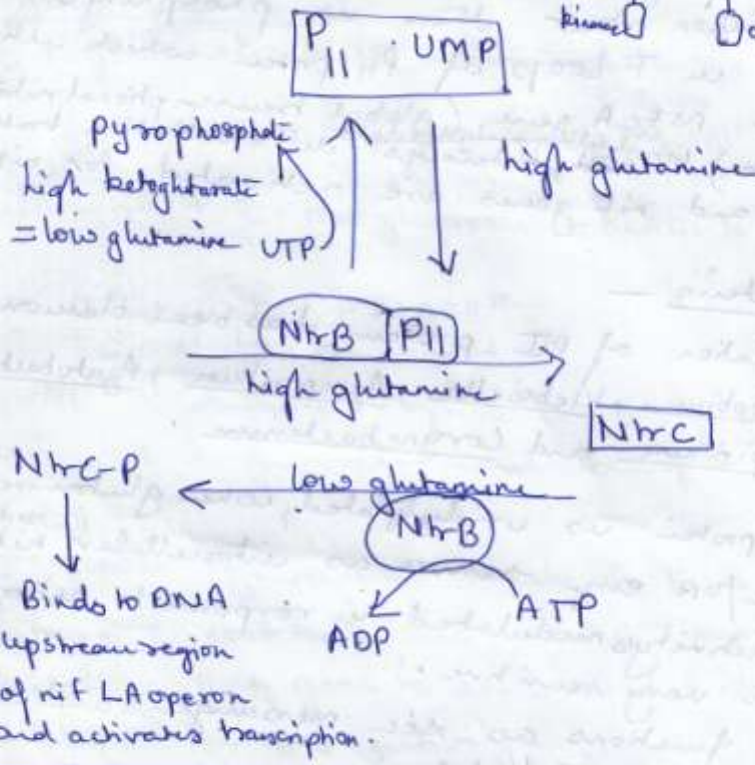 kinase
P
II . UMP
pyrophosphate
high ketoglutarate
= low glutamine UTP
high glutamine
NtrB PII
high glutamine
NtrC
NtrC-P
low glutamine
NtrB
ATP
ADP
Binds to DNA
upstream region
of nif LA operon
and activates transcription.